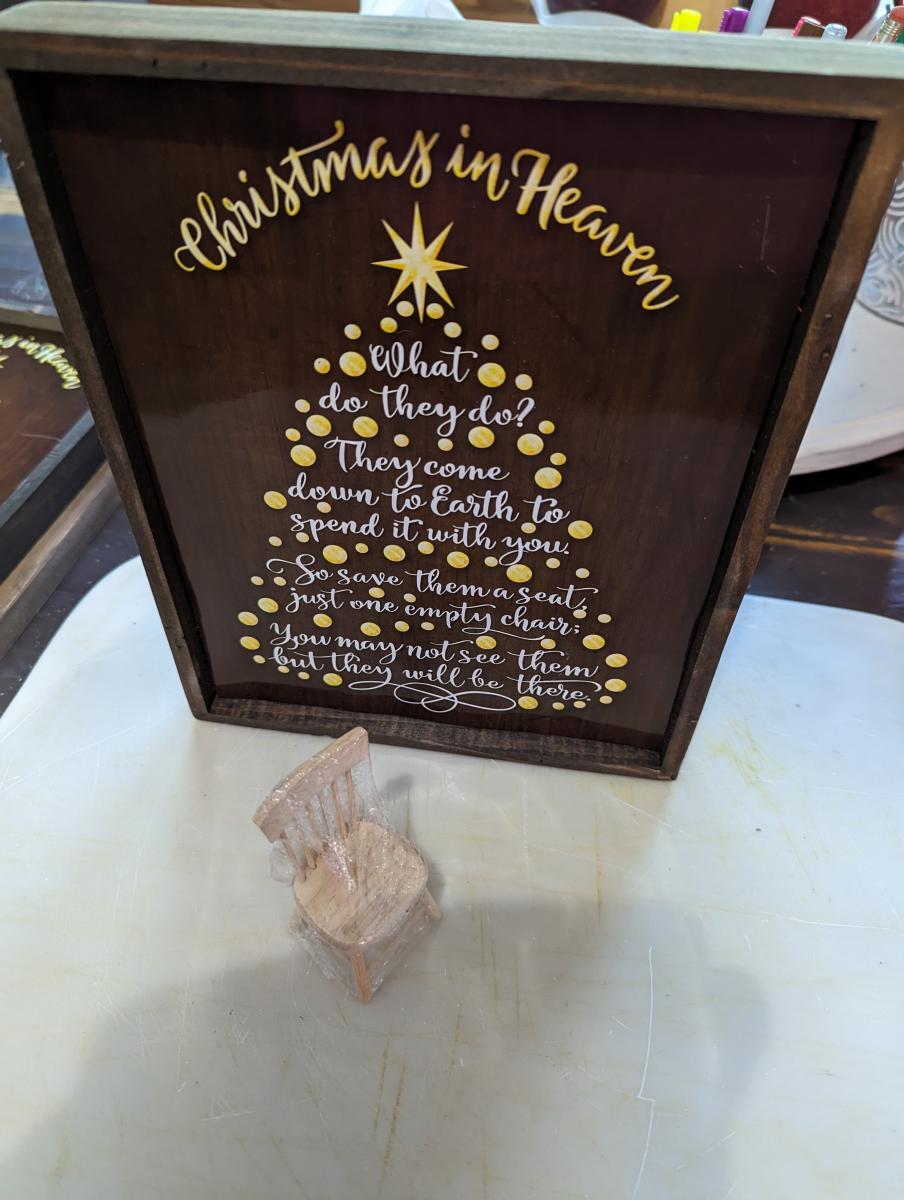 Christmas in Heaven
What
do they do?
They come
down to Earth to
spend it with you.
So save them a seat,
just one empty chair;
You may not see them
but they will be there.
in Heaven